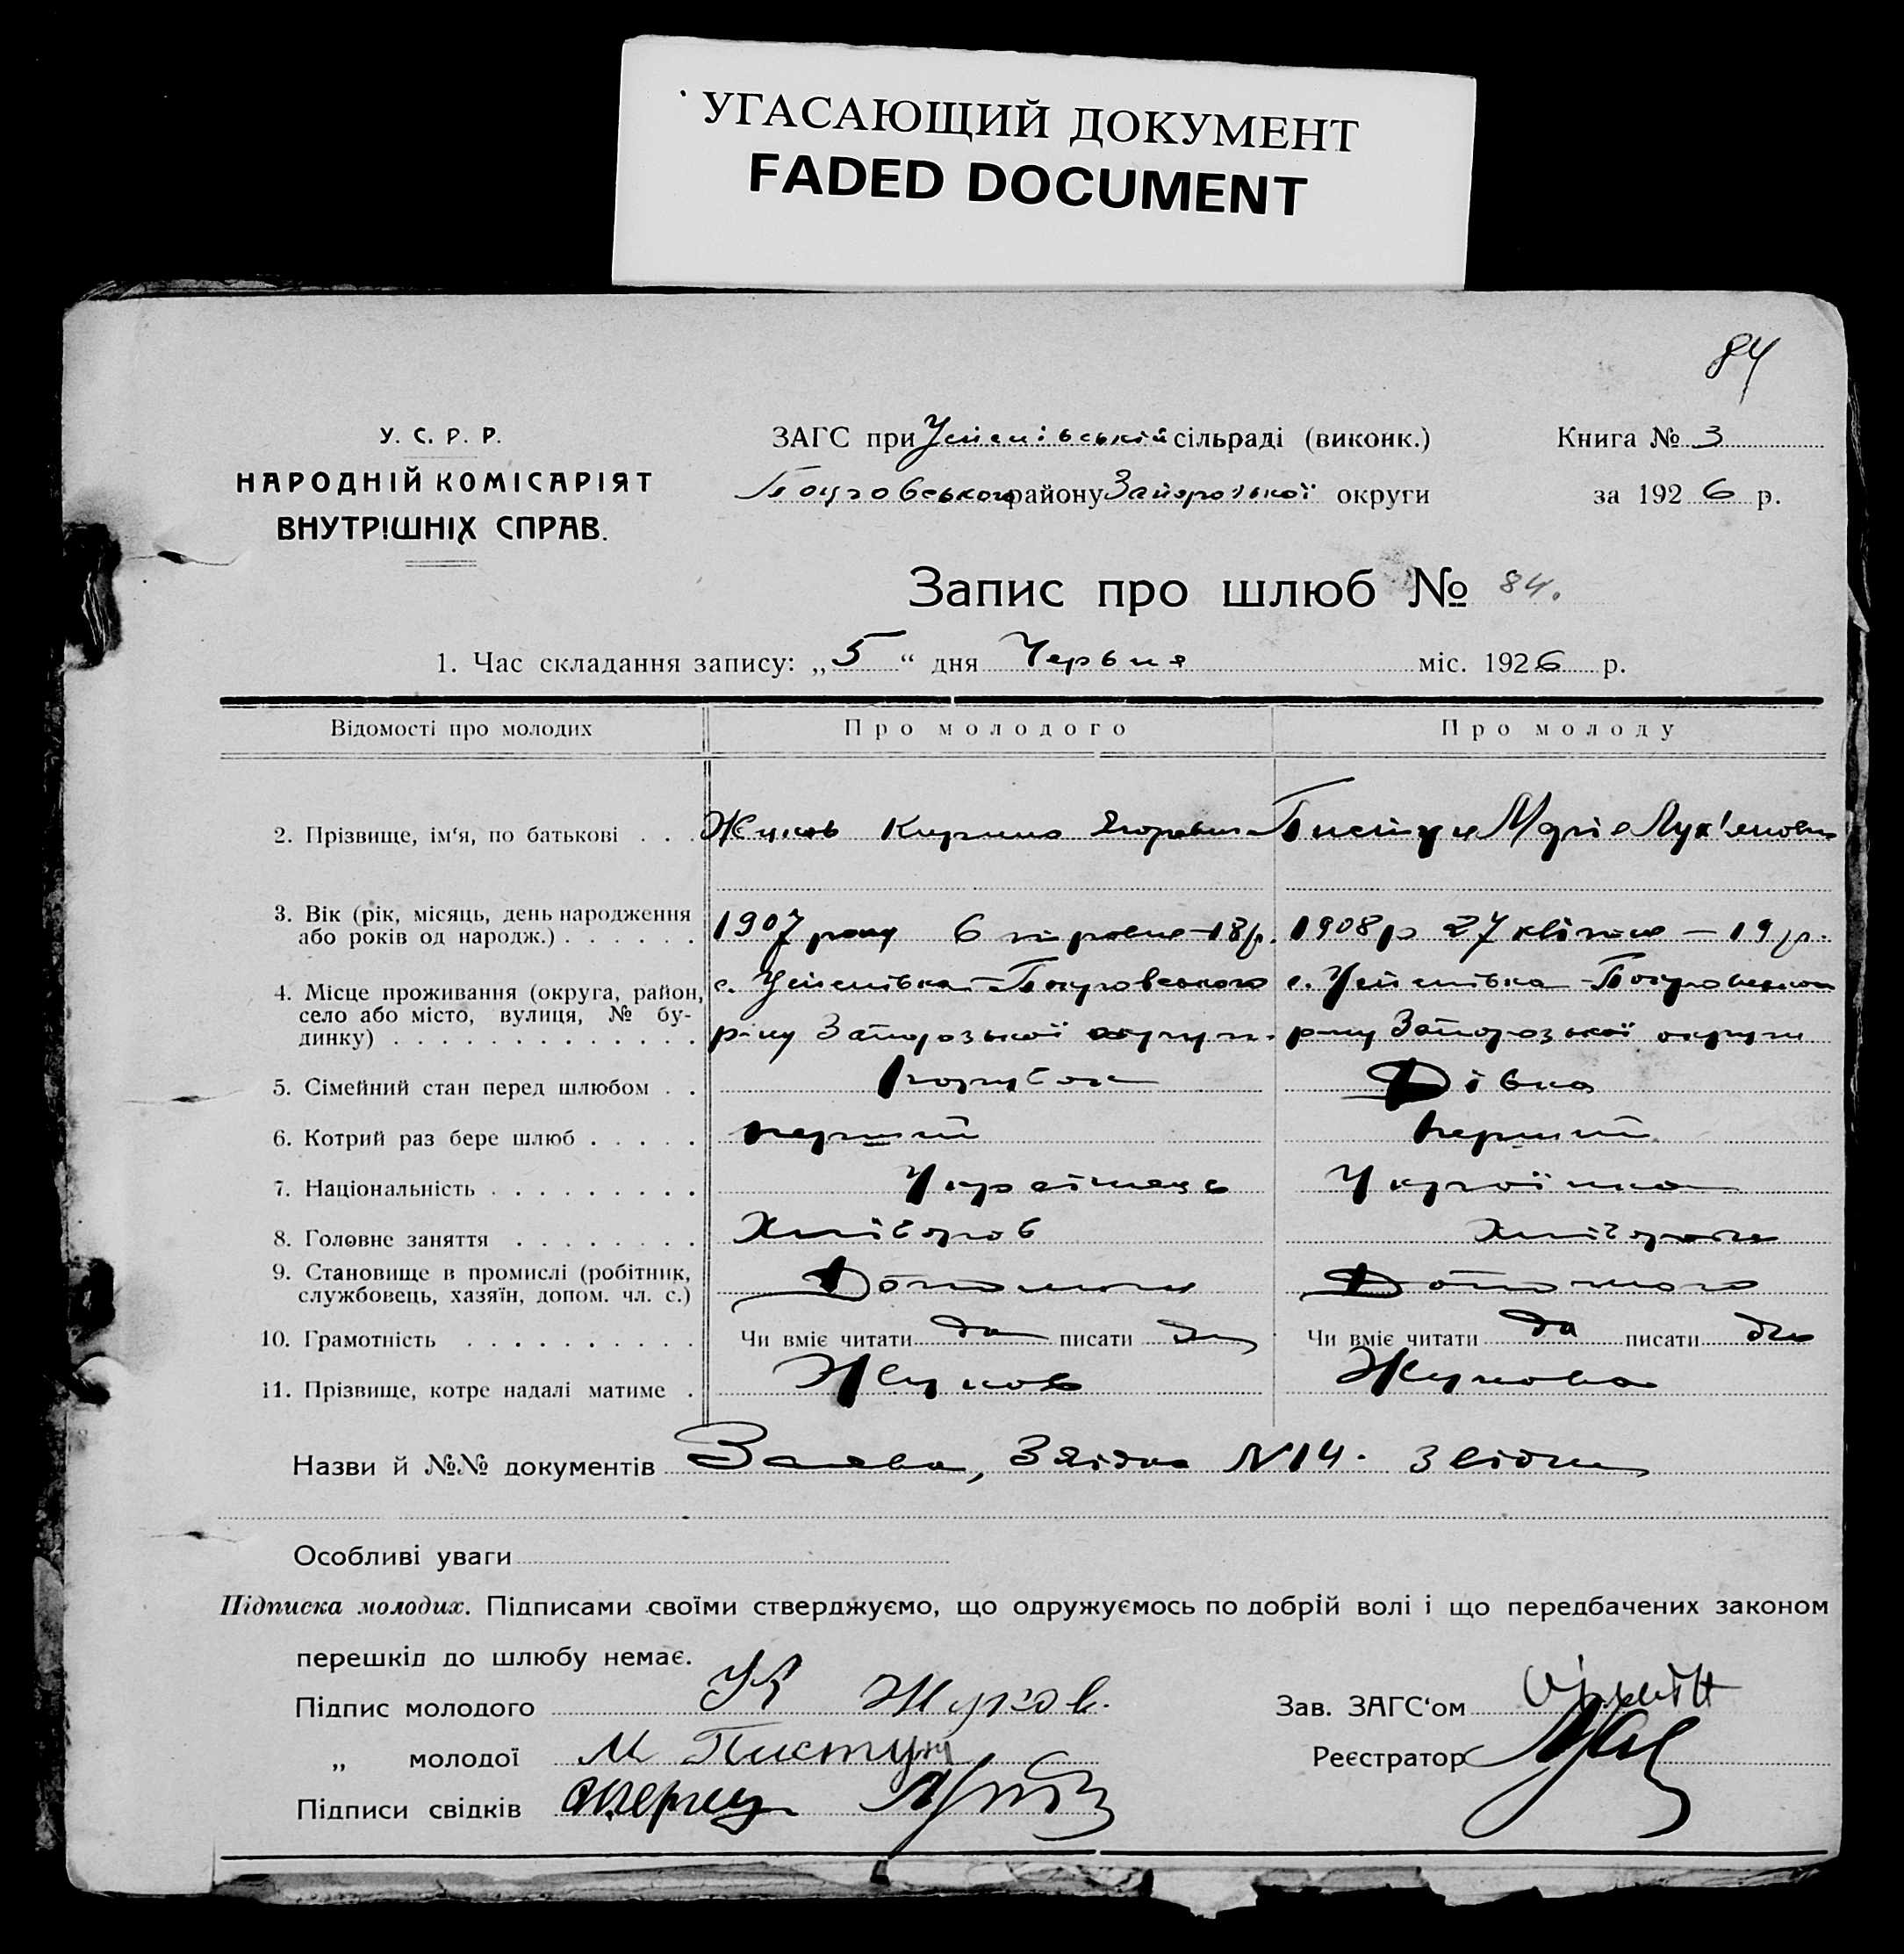 УГАСАЮЩИЙ ДОКУМЕНТ
FADED DOCUMENT
84
У. С. Р. Р.
НАРОДНІЙ КОМІСАРІЯТ
ВНУТРІШНІХ СПРАВ.
ЗАГС при Успенівській сільраді (виконк.)
Покровського району Запорозької округи
Книга № 3
за 1926 р.
Запис про шлюб № 84.
1. Час складання запису: „5“ дня Червня міс. 1926 р.
Відомості про молодих Про молодого Про молоду
2. Прізвище, ім‘я, по батькові . . . Жуков Кирило Єгорович Пистун Марія Лук'яновна
3. Вік (рік, місяць, день народження
або років од народж.) . . . . . . 1907 року 6 - 18 р. 1908 р 27 квітня — 19 р.
4. Місце проживання (округа, район, с. Успенівка - Покровського с. Успенівка - Покровського
село або місто, вулиця, № бу-
динку) . . . . . . . . . . . . . р-ну Запорозької округи. р-ну Запорозької округи
5. Сімейний стан перед шлюбом . . парубок Дівка
6. Котрий раз бере шлюб . . . . . перший перший
7. Національність . . . . . . . . . Українець Українка
8. Головне заняття . . . . . . . . Хлібороб
9. Становище в промислі (робітник,
службовець, хазяїн, допом. чл. с.)
10. Грамотність . . . . . . . . . . Чи вміє читати да писати да Чи вміє читати да писати да
11. Прізвище, котре надалі матиме . Жуков Жукова
Назви й №№ документів Заява, Звідка N 14. Звідки
Особливі уваги
Підписка молодих. Підписами своїми стверджуємо, що одружуємось по добрій волі і що передбачених законом
перешкід до шлюбу немає.
Підпис молодого Жуков.
Зав. ЗАГС‘ом
„ молодої М Пистун
Реєстратор
Підписи свідків